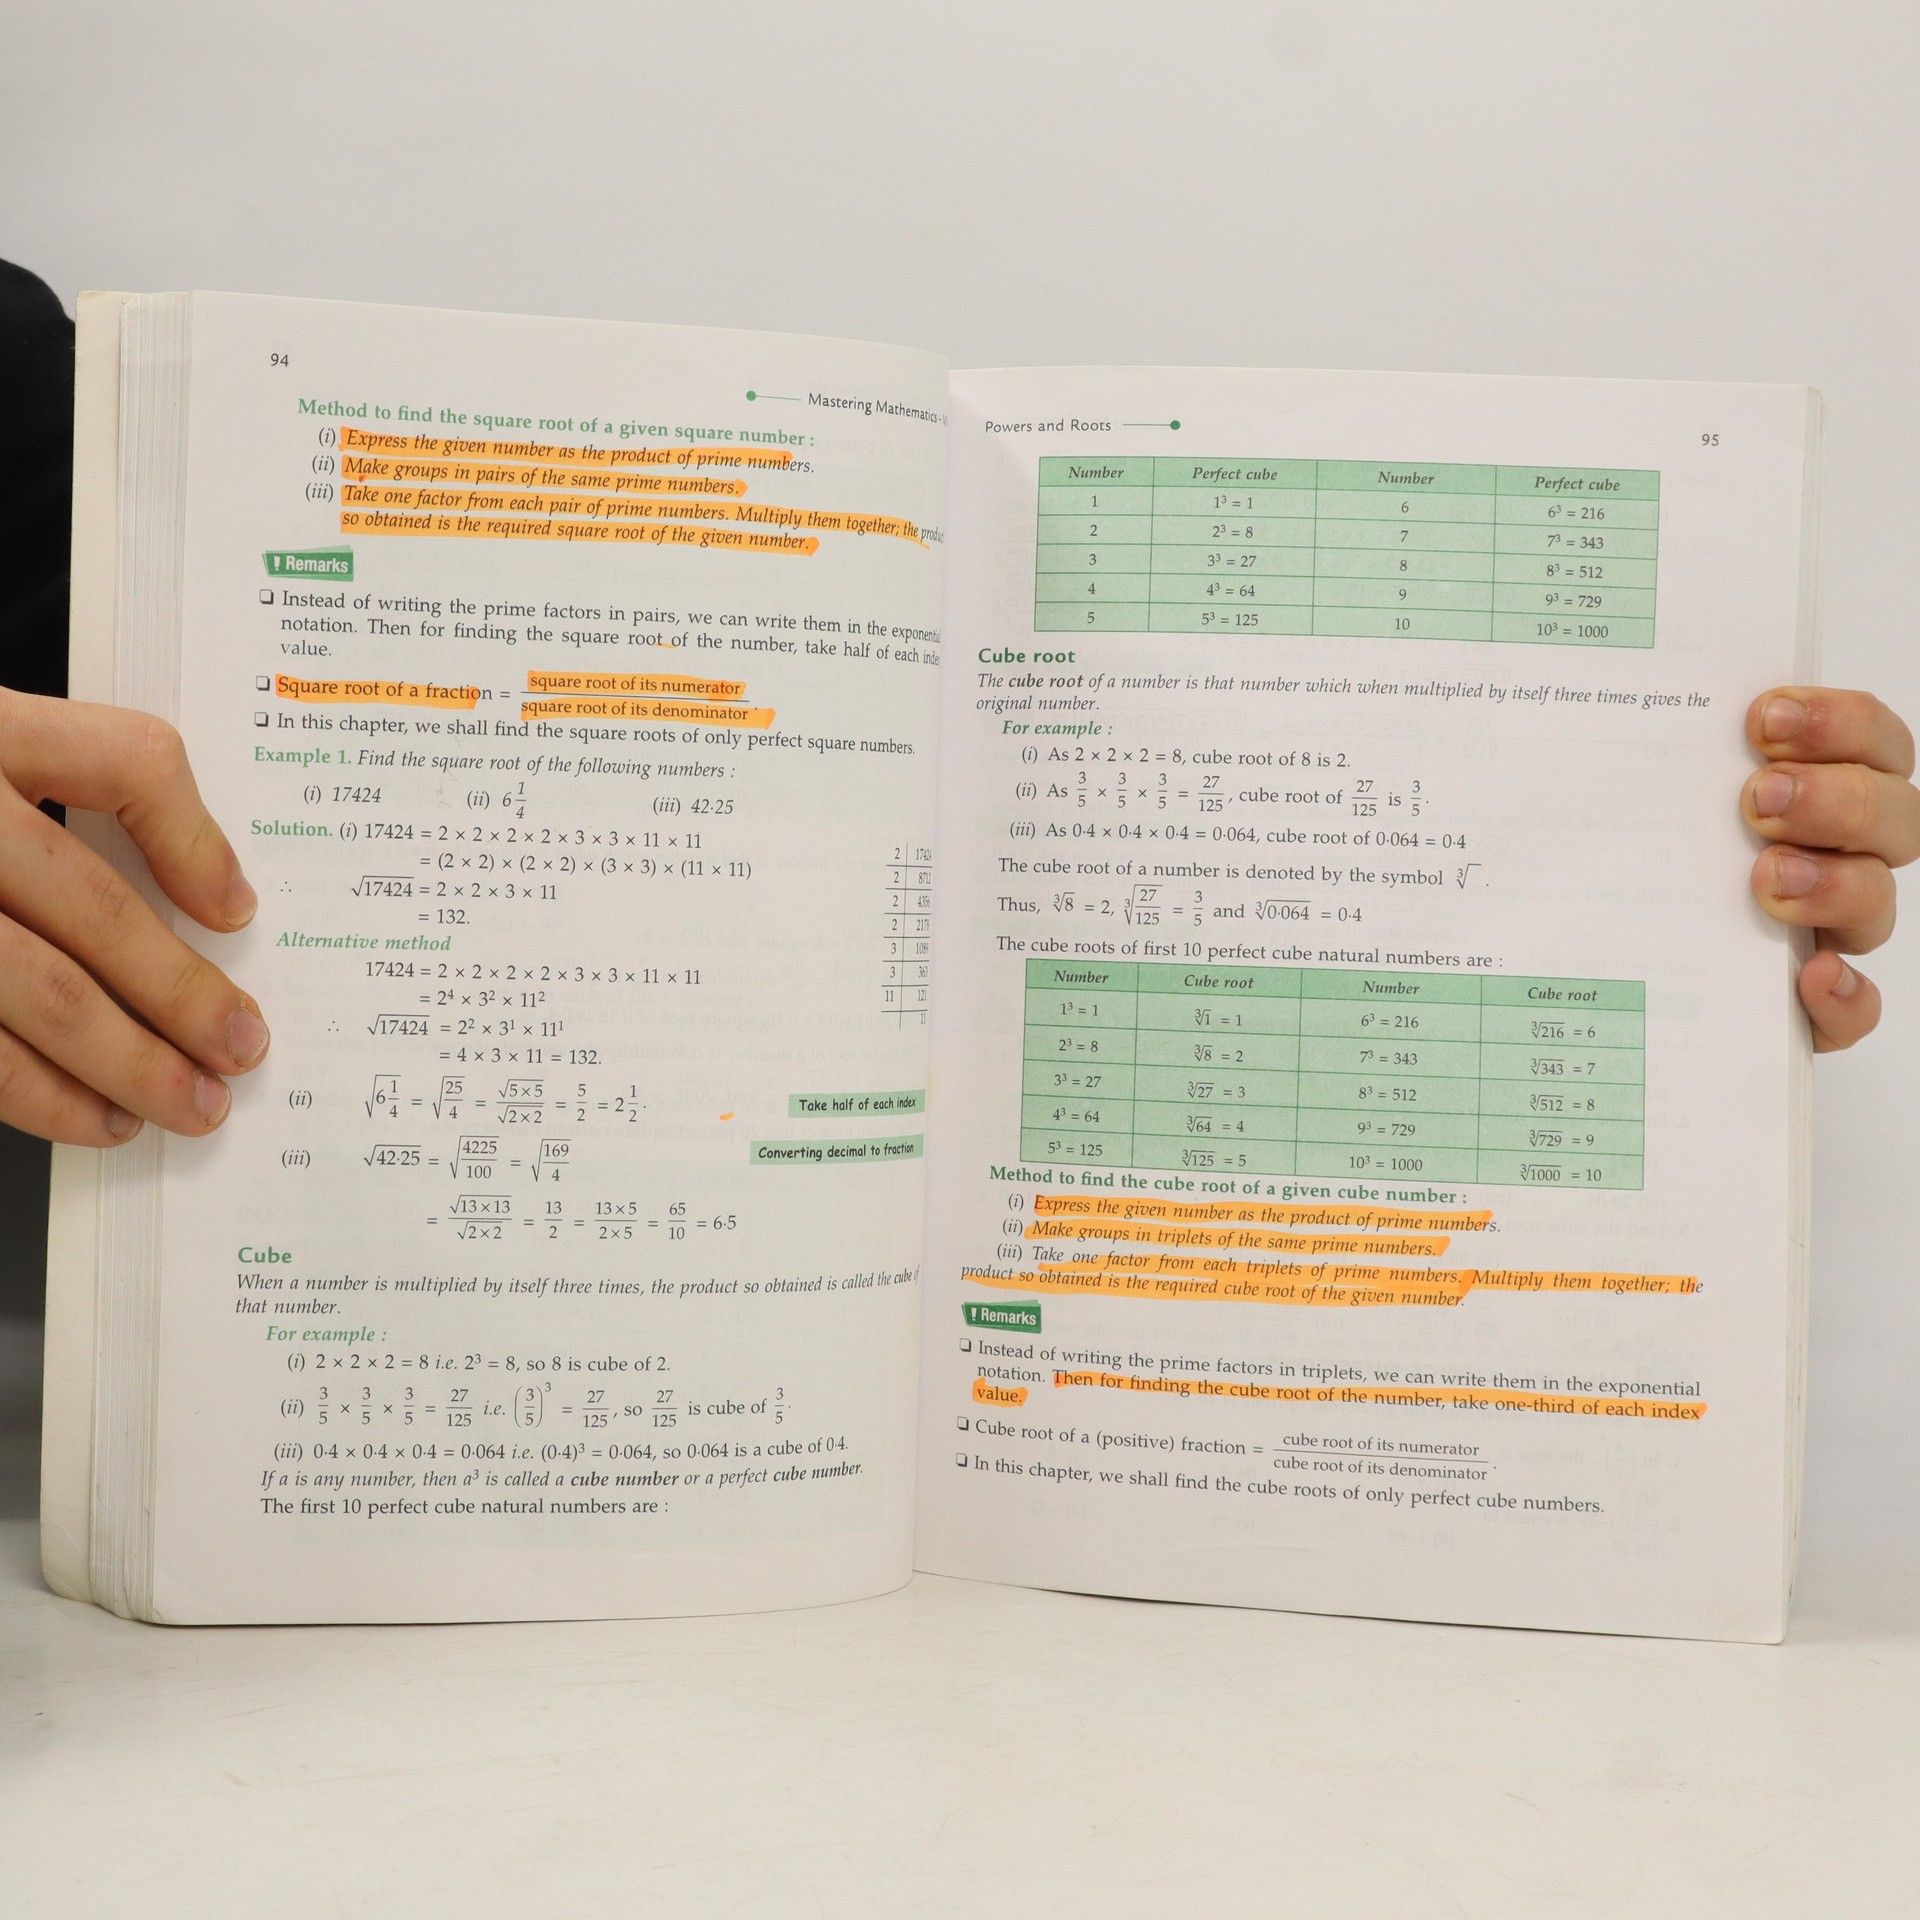 94
Mastering Mathematics
Method to find the square root of a given square number :
(i) Express the given number as the product of prime numbers.
(ii) Make groups in pairs of the same prime numbers.
(iii) Take one factor from each pair of prime numbers. Multiply them together; the
so obtained is the required square root of the given number.
! Remarks
❑ Instead of writing the prime factors in pairs, we can write them in the
notation. Then for finding the square root of the number, take half of each
value.
❑ Square root of a fraction = square root of its numerator / square root of its denominator .
❑ In this chapter, we shall find the square roots of only perfect square numbers.
Example 1. Find the square root of the following numbers :
(i) 17424 (ii) 6 1/4 (iii) 42·25
Solution. (i) 17424 = 2 × 2 × 2 × 2 × 3 × 3 × 11 × 11
= (2 × 2) × (2 × 2) × (3 × 3) × (11 × 11)
∴ √17424 = 2 × 2 × 3 × 11
= 132.
2 | 17424
2 | 8712
2 | 4356
2 | 2178
3 | 1089
3 | 363
11 | 121
11
Alternative method
17424 = 2 × 2 × 2 × 2 × 3 × 3 × 11 × 11
= 2⁴ × 3² × 11²
∴ √17424 = 2² × 3¹ × 11¹
= 4 × 3 × 11 = 132.
Take half of each index
(ii) √(6 1/4) = √(25/4) = √5×5 / √2×2 = 5/2 = 2 1/2 .
Converting decimal to fraction
(iii) √42·25 = √(4225/100) = √(169/4)
= √13×13 / √2×2 = 13/2 = 13×5 / 2×5 = 65/10 = 6·5
Cube
When a number is multiplied by itself three times, the product so obtained is called the cube of
that number.
For example :
(i) 2 × 2 × 2 = 8 i.e. 2³ = 8, so 8 is cube of 2.
(ii) 3/5 × 3/5 × 3/5 = 27/125 i.e. (3/5)³ = 27/125 , so 27/125 is cube of 3/5 .
(iii) 0·4 × 0·4 × 0·4 = 0·064 i.e. (0·4)³ = 0·064, so 0·064 is a cube of 0·4.
If a is any number, then a³ is called a cube number or a perfect cube number.
The first 10 perfect cube natural numbers are :
Powers and Roots
95
Number Perfect cube Number Perfect cube
1 1³ = 1 6 6³ = 216
2 2³ = 8 7 7³ = 343
3 3³ = 27 8 8³ = 512
4 4³ = 64 9 9³ = 729
5 5³ = 125 10 10³ = 1000
Cube root
The cube root of a number is that number which when multiplied by itself three times gives the
original number.
For example :
(i) As 2 × 2 × 2 = 8, cube root of 8 is 2.
(ii) As 3/5 × 3/5 × 3/5 = 27/125 , cube root of 27/125 is 3/5 .
(iii) As 0·4 × 0·4 × 0·4 = 0·064, cube root of 0·064 = 0·4
The cube root of a number is denoted by the symbol ∛ .
Thus, ∛8 = 2, ∛(27/125) = 3/5 and ∛0·064 = 0·4
The cube roots of first 10 perfect cube natural numbers are :
Number Cube root Number Cube root
1³ = 1 ∛1 = 1 6³ = 216 ∛216 = 6
2³ = 8 ∛8 = 2 7³ = 343 ∛343 = 7
3³ = 27 ∛27 = 3 8³ = 512 ∛512 = 8
4³ = 64 ∛64 = 4 9³ = 729 ∛729 = 9
5³ = 125 ∛125 = 5 10³ = 1000 ∛1000 = 10
Method to find the cube root of a given cube number :
(i) Express the given number as the product of prime numbers.
(ii) Make groups in triplets of the same prime numbers.
(iii) Take one factor from each triplets of prime numbers. Multiply them together; the
product so obtained is the required cube root of the given number.
! Remarks
❑ Instead of writing the prime factors in triplets, we can write them in the exponential
notation. Then for finding the cube root of the number, take one-third of each index
value.
❑ Cube root of a (positive) fraction = cube root of its numerator / cube root of its denominator .
❑ In this chapter, we shall find the cube roots of only perfect cube numbers.